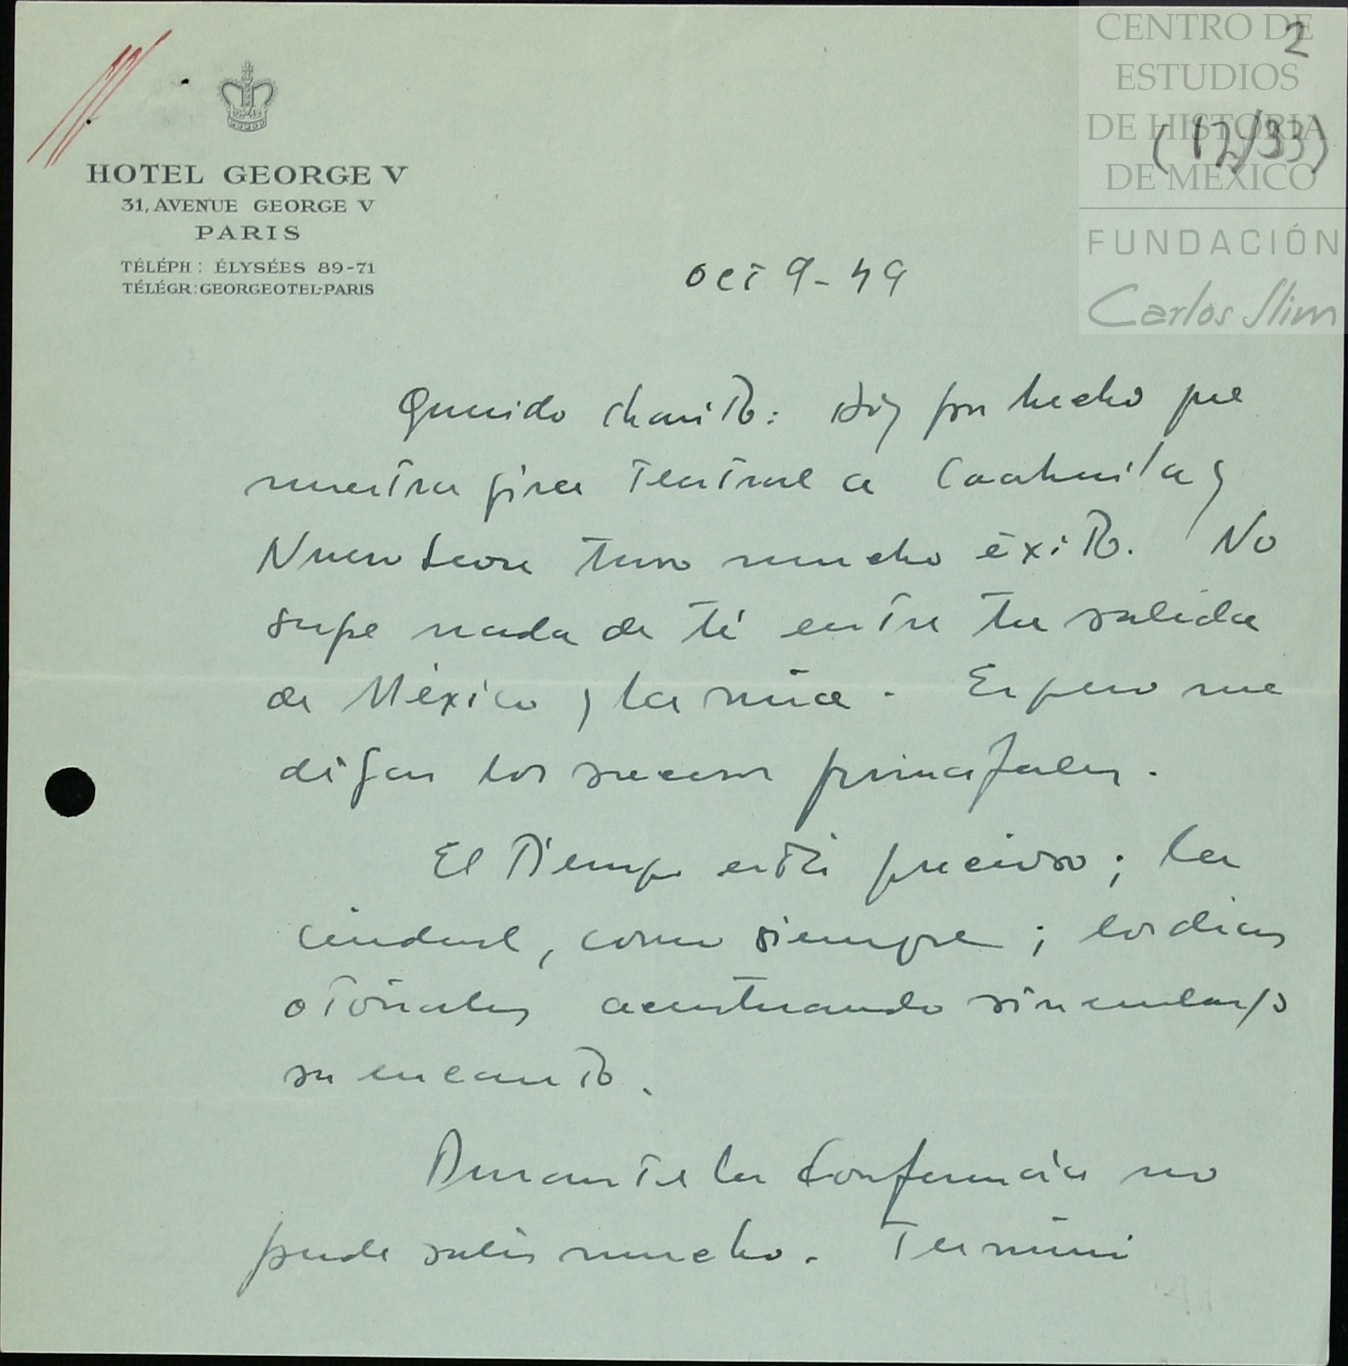 2
(12/33)
CENTRO DE
ESTUDIOS
DE HISTORIA
DE MÉXICO
FUNDACIÓN
Carlos Slim
HOTEL GEORGE V
31, AVENUE GEORGE V
PARIS
TÉLÉPH : ÉLYSÉES 89-71
TÉLÉGR : GEORGEOTEL-PARIS
oct 9-49
Querido Chanito: doy por hecho que
nuestra gira teatral a Coahuila y
Nuevo Leon tuvo mucho éxito. No
supe nada de tí entre tu salida
de México y la mía. Espero me
digas los sucesos principales.
El tiempo está precioso; la
ciudad, como siempre; los dias
otoñales acentuando sin embargo
su encanto.
Durante la Conferencia no
pude salir mucho. Terminó